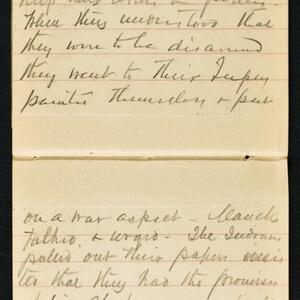 When they understood that
they were to be disarmed
they went to their Tepees
painted themselves & put
on a war aspect -
talked & urged - The Indians
pulled out their papers insis
ted that they had the promises